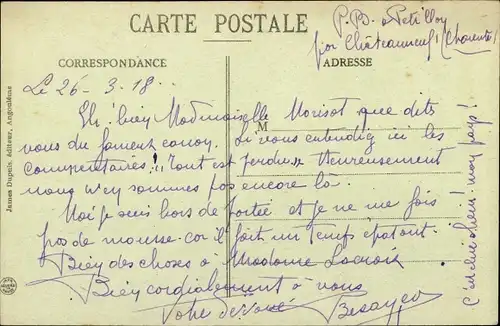 CARTE POSTALE
P.B. a Petilloy
par Châteauneuf (Charente)
CORRESPONDANCE
ADRESSE
Le 26-3-18.
Eh! biey Madmoiselle Morisot que dits
vous du fameux canoy. Si vous entendiez ici les
M
Commentaires! "Tout est perdu" Heureusement
nous n'ey sommes pas encore là.
Moi je suis hors de portée et je ne me fais
pas de mousse car il fait un temps épatant
Biey des choses à Madame Lacroix
Biey cordialement à vous
Votre dévoué
c'est le cher moy pays!
James Dupuis, éditeur, Angoulême